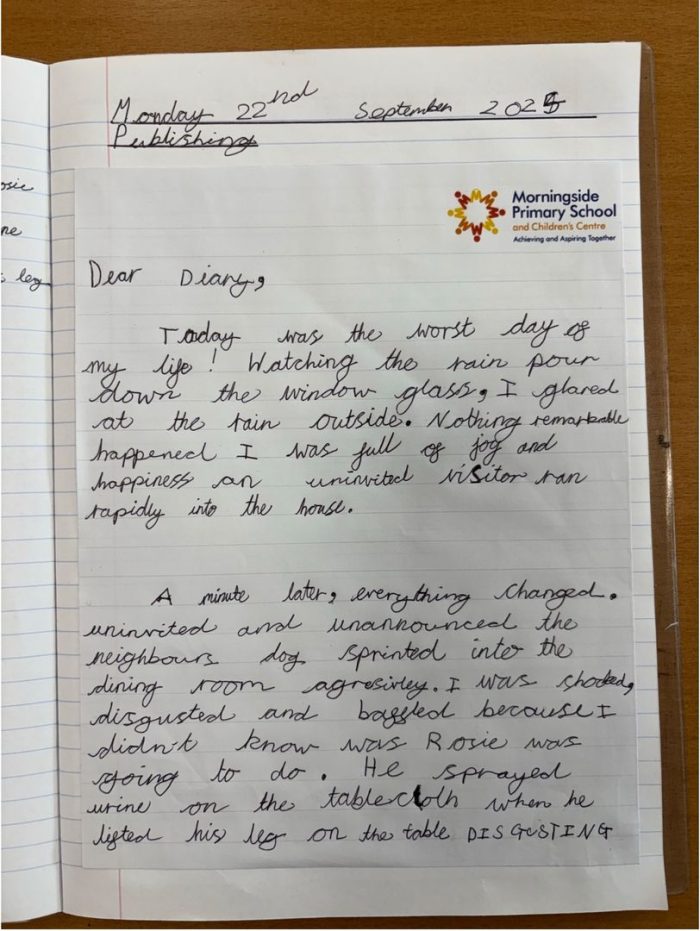 osie
ne
leg
Monday 22nd September 2025
Publishing
Morningside
Primary School
and Children's Centre
Achieving and Aspiring Together
Dear Diary,
Today was the worst day of
my life! Watching the rain pour
down the window glass, I glared
at the rain outside. Nothing remarkable
happened I was full of joy and
happiness an uninvited visitor ran
rapidly into the house.
A minute later, everything changed.
uninvited and unannounced the
neighbours dog sprinted into the
dining room agresivley. I was shocked,
disgusted and baffled because I
didn't know was Rosie was
going to do. He sprayed
urine on the tablecloth when he
lifted his leg on the table DISGUSTING